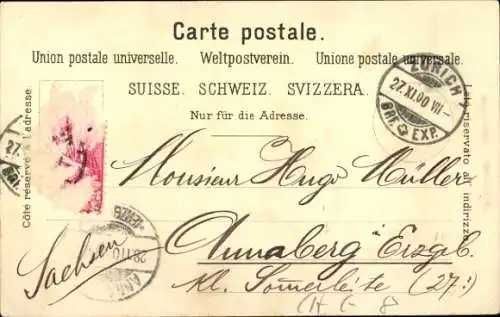 Carte postale.
Union postale universelle. Weltpostverein. Unione postale universale.
SUISSE. SCHWEIZ. SVIZZERA.
Nur für die Adresse.
Côté réservé à l'adresse.
Lato riservato all' indirizzo.
ZÜRICH
27.XI.00 VII-
BRF. EXP.
27.
BRF.
Monsieur Hugo Müller
Annaberg Erzgb.
Sachsen
Kl. Sommerleite (27:)